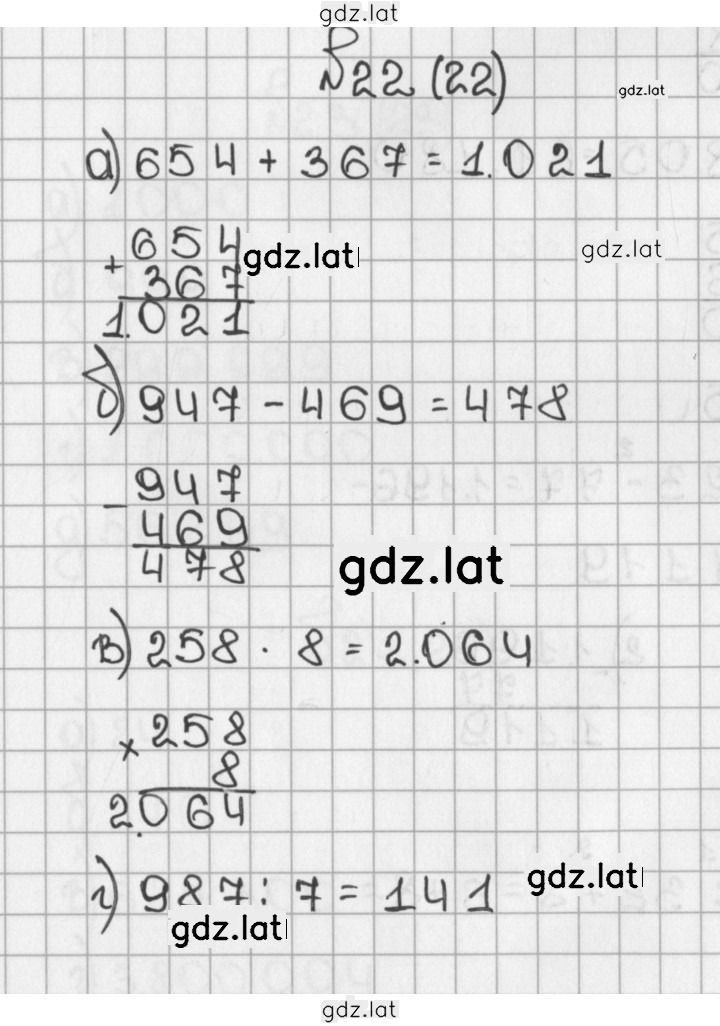 gdz.lat
№22 (22)
gdz.lat
а) 654 + 367 = 1.021
+ 654
gdz.lat
gdz.lat
367
1.021
б) 947 - 469 = 478
- 947
469
478
gdz.lat
в) 258 · 8 = 2.064
× 258
8
2.064
г) 987 : 7 = 141
gdz.lat
gdz.lat
gdz.lat